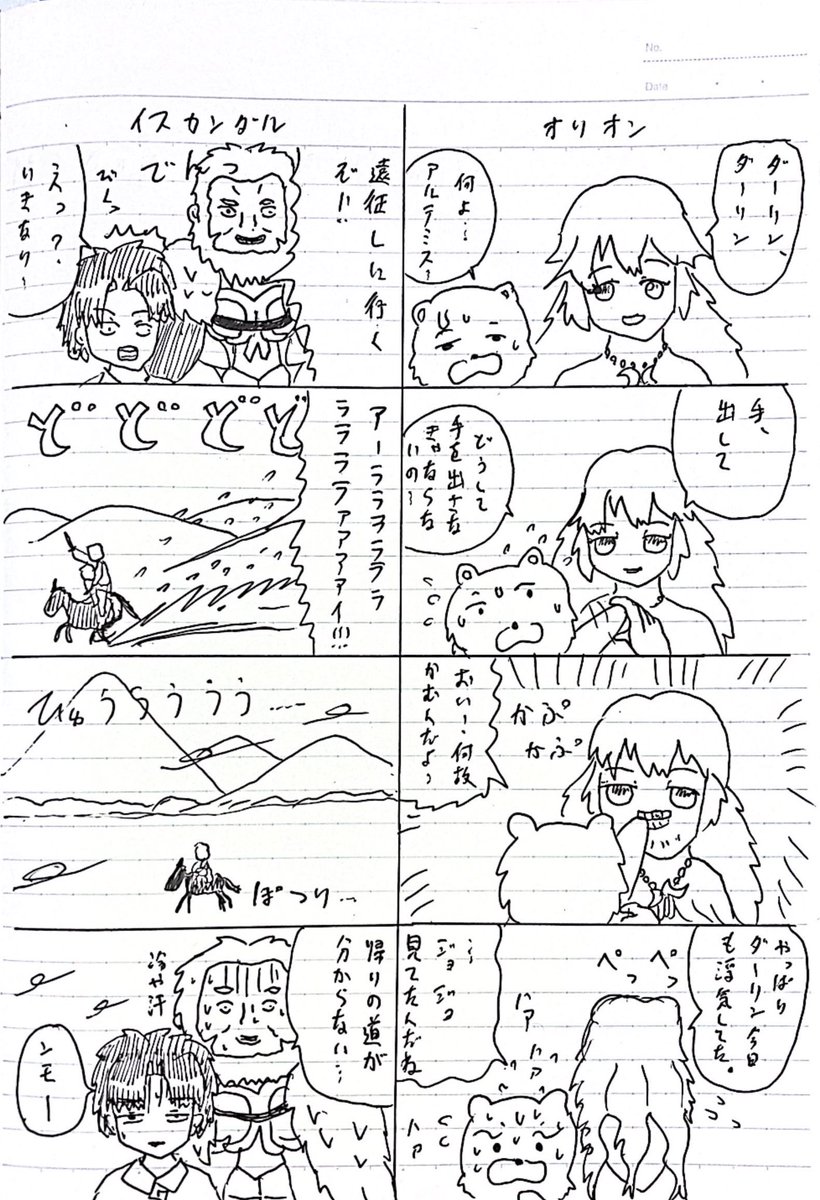 No.
Date
オリオン
ダーリン、
ダーリン
何よ…
アルテミス～
手、
出して
どうして
手を出さな
きゃならな
いの～
かぷ
かぷ
おい…何故
かむんだよ～
やっぱり
ダーリン今日
も浮気してた。
ぺっ
ぺっ
…
ジョジョ
見てたんだね
ハァ
ハァ
ハァ
イスカンダル
遠征しに行く
ぞ!!!
でんっ
びくっ
えっ？
いきなり～
アーララララララ
ララララァァァァイ!!!
どどどど
ひゅううううう……
ぽつり…
帰りの道が
分からない…
冷や汗
ンモー